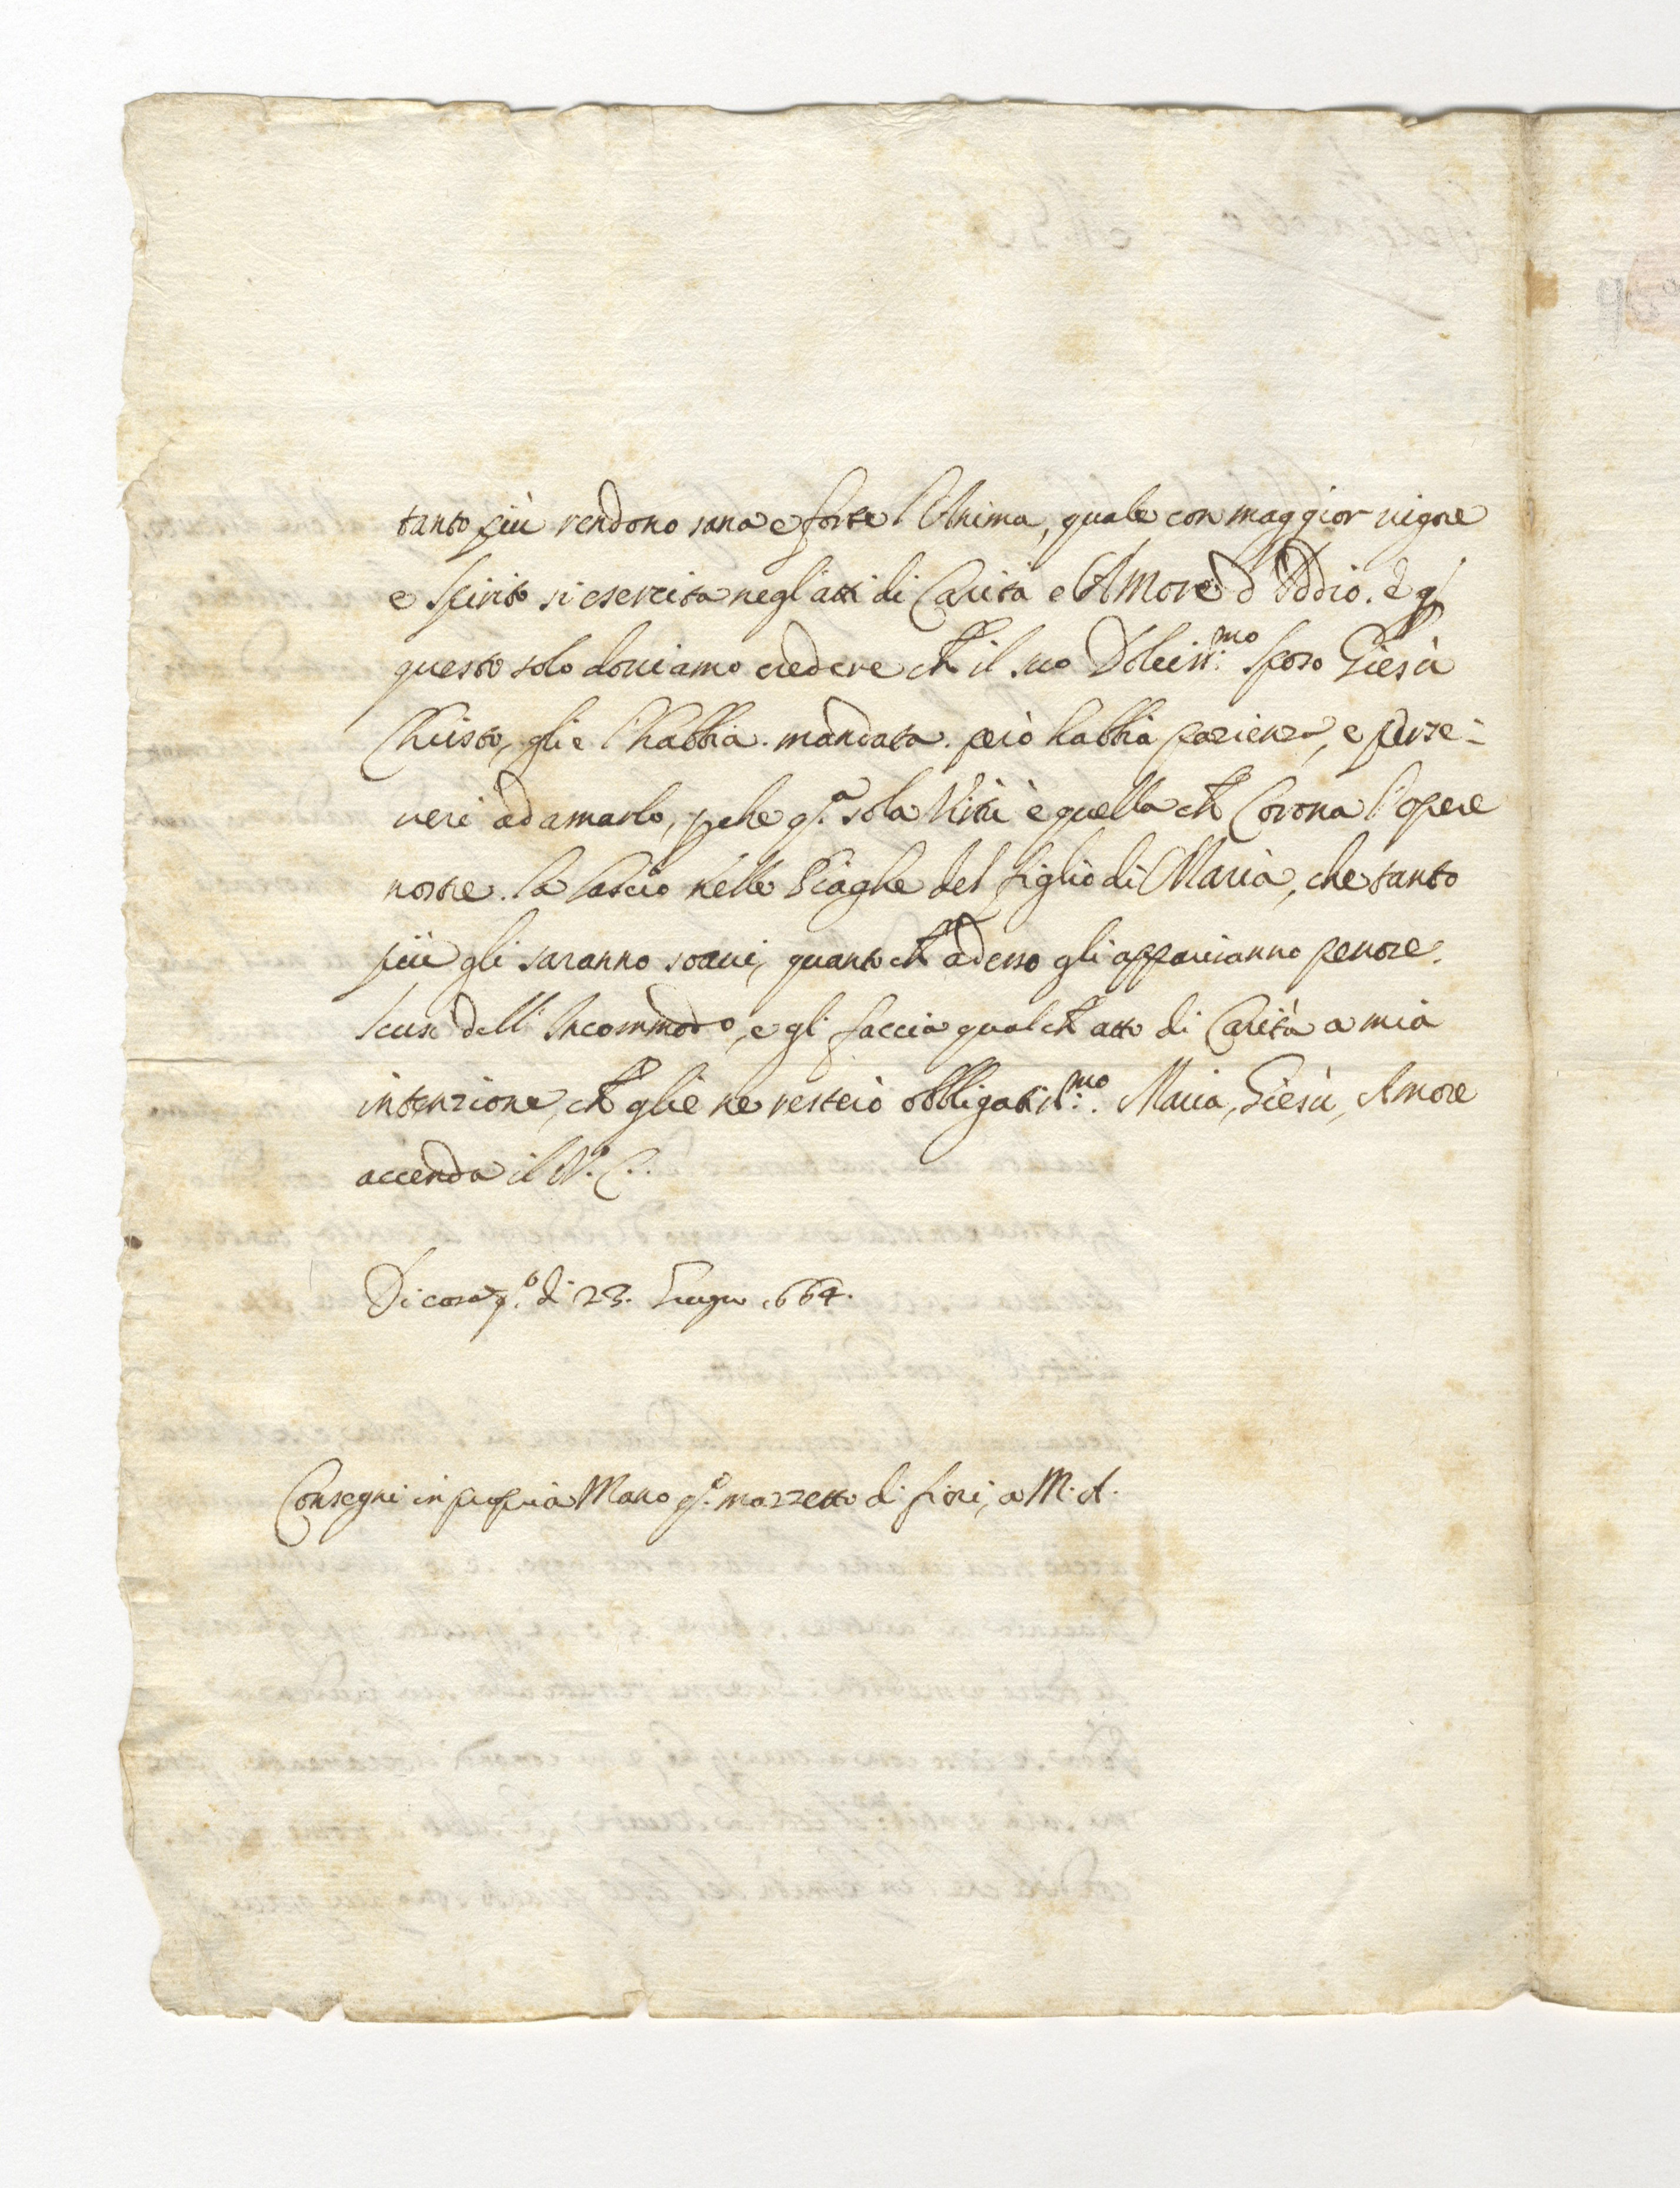 tanto più rendono sana e forte l'Anima, quale con maggior vigore
e spirito si esercita negl'atti di Carità e Amore d'Iddio. e p
questo solo doviamo credere ch il suo Dolciss:mo Sposo Giesù
Christo, glie l'habbia mandata. però habbia pazienza, e perse-
veri ad amarlo, pche q.a sola Virtù è quella ch Corona l'opere
nostre. la lascio nelle Piaghe del figlio di Maria, che tanto
più gli saranno soavi, quanto ch adesso gli appariranno penose.
scusi dell'Incommodo, e gli faccia qualch atto di Carità a mia
intenzione, ch glie ne resterò obbligatiss:mo. Maria, Giesù, Amore
accenda il N. C.
Di casa q.o dì 23. Giugno 1664.
Consegni in propria Mano q.o mazzetto di fiori, a M. A.